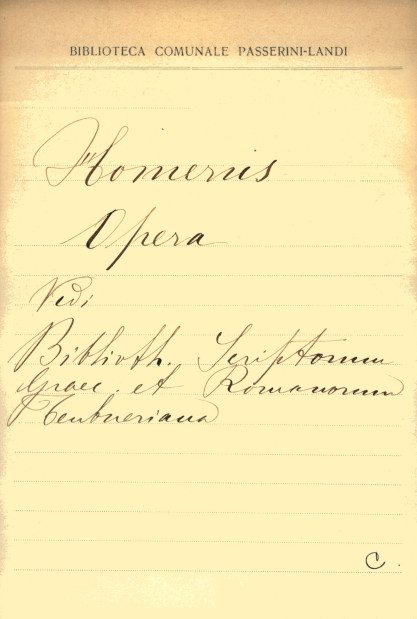 BIBLIOTECA COMUNALE PASSERINI-LANDI
Homerus
Opera
Vedi
Biblioth. Scriptorum
Graec. et Romanorum
Teubneriana
C.